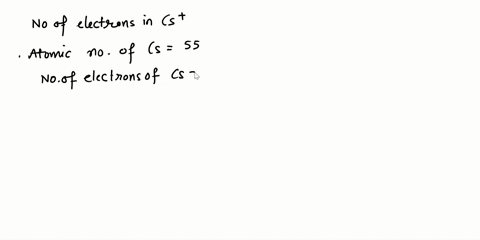 No of electrons in Cs⁺
. Atomic no. of Cs = 55
No. of electrons of Cs -